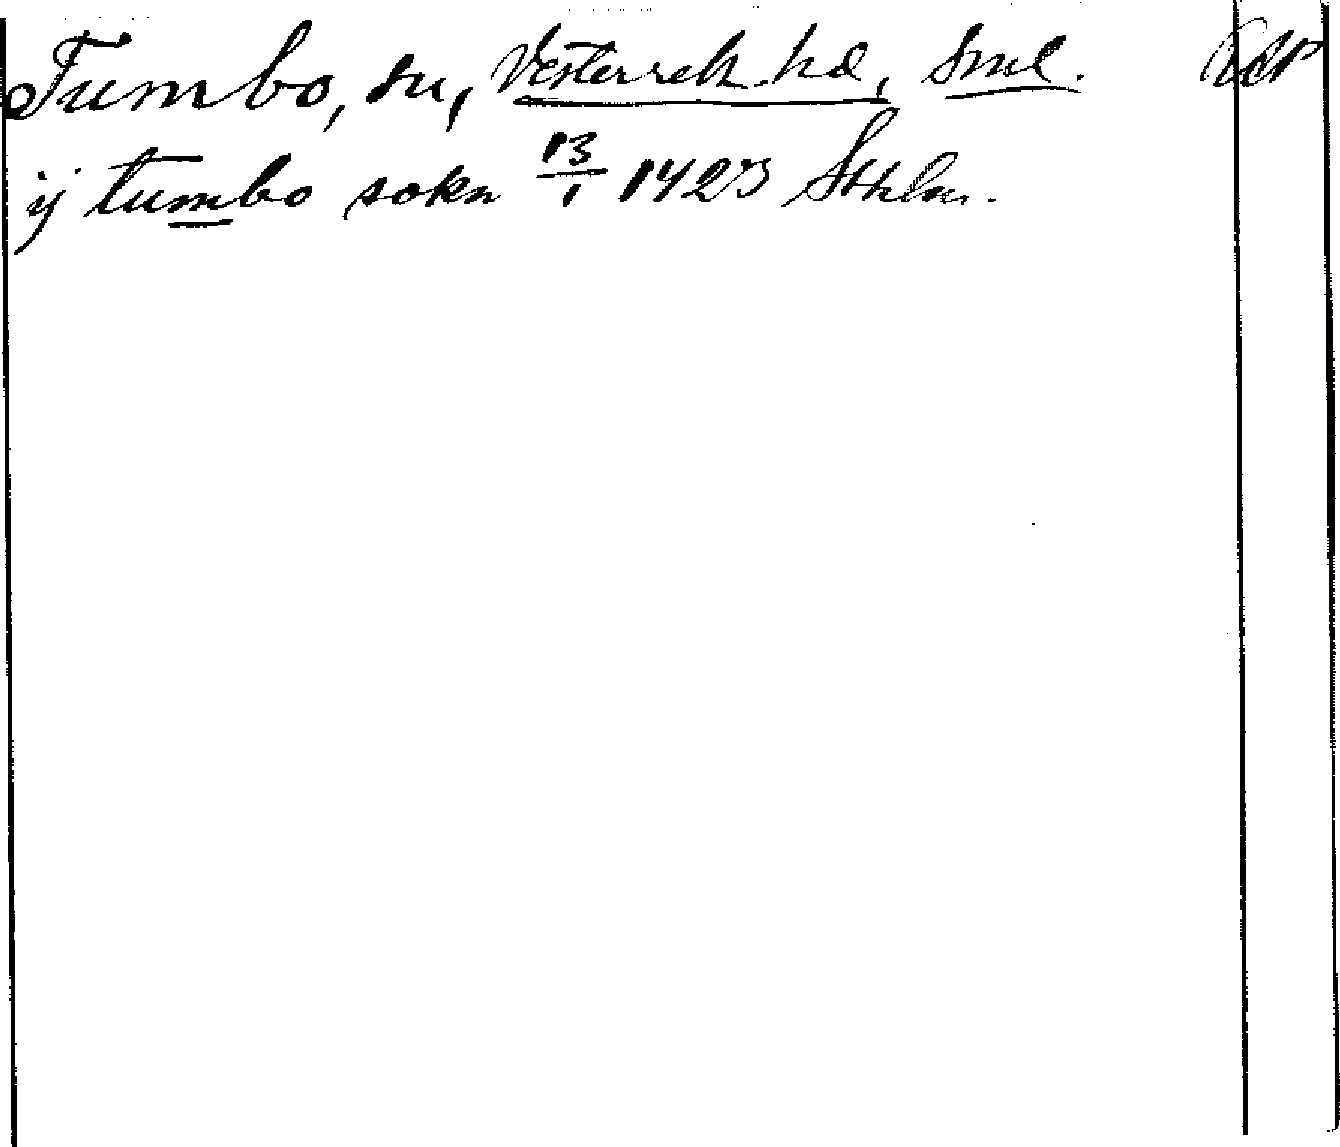 Tumbo, sn, Västerrek. hd, Sml.
ij tumbo sokn 13/1 1423 Sthlm.